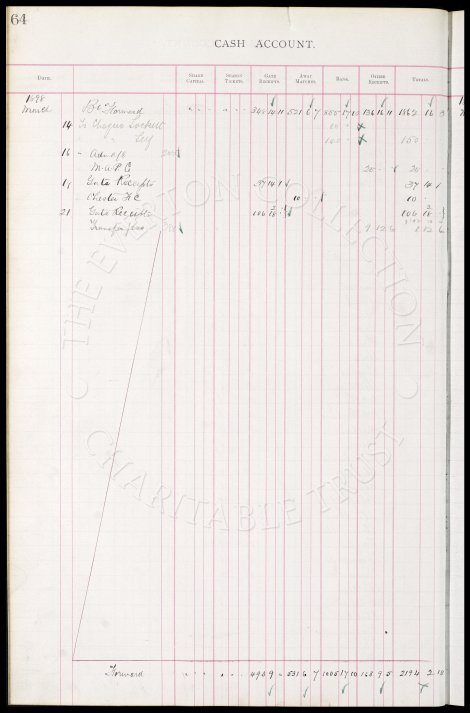 64
CASH ACCOUNT.
DATE. SHARE CAPITAL. SEASON TICKETS. GATE RECEIPTS. AWAY MATCHES. BANK. OTHER RECEIPTS. TOTALS.
1898
March Bt Forward 348 14 11 521 6 7 855 17 10 136 16 11 1862 16 3
14 To Cheques Lockett 10
" Self 140 150
16 " 20 20
18 Gate Receipts 37 14 1 37 14 1
Chester FC 10 10
21 Gate Receipts 106
Transfer fees 12 6 12 6
Forward 493 9 531 6 7 1005 17 10 163 9 5 2194 2 10
THE EVERTON COLLECTION
CHARITABLE TRUST